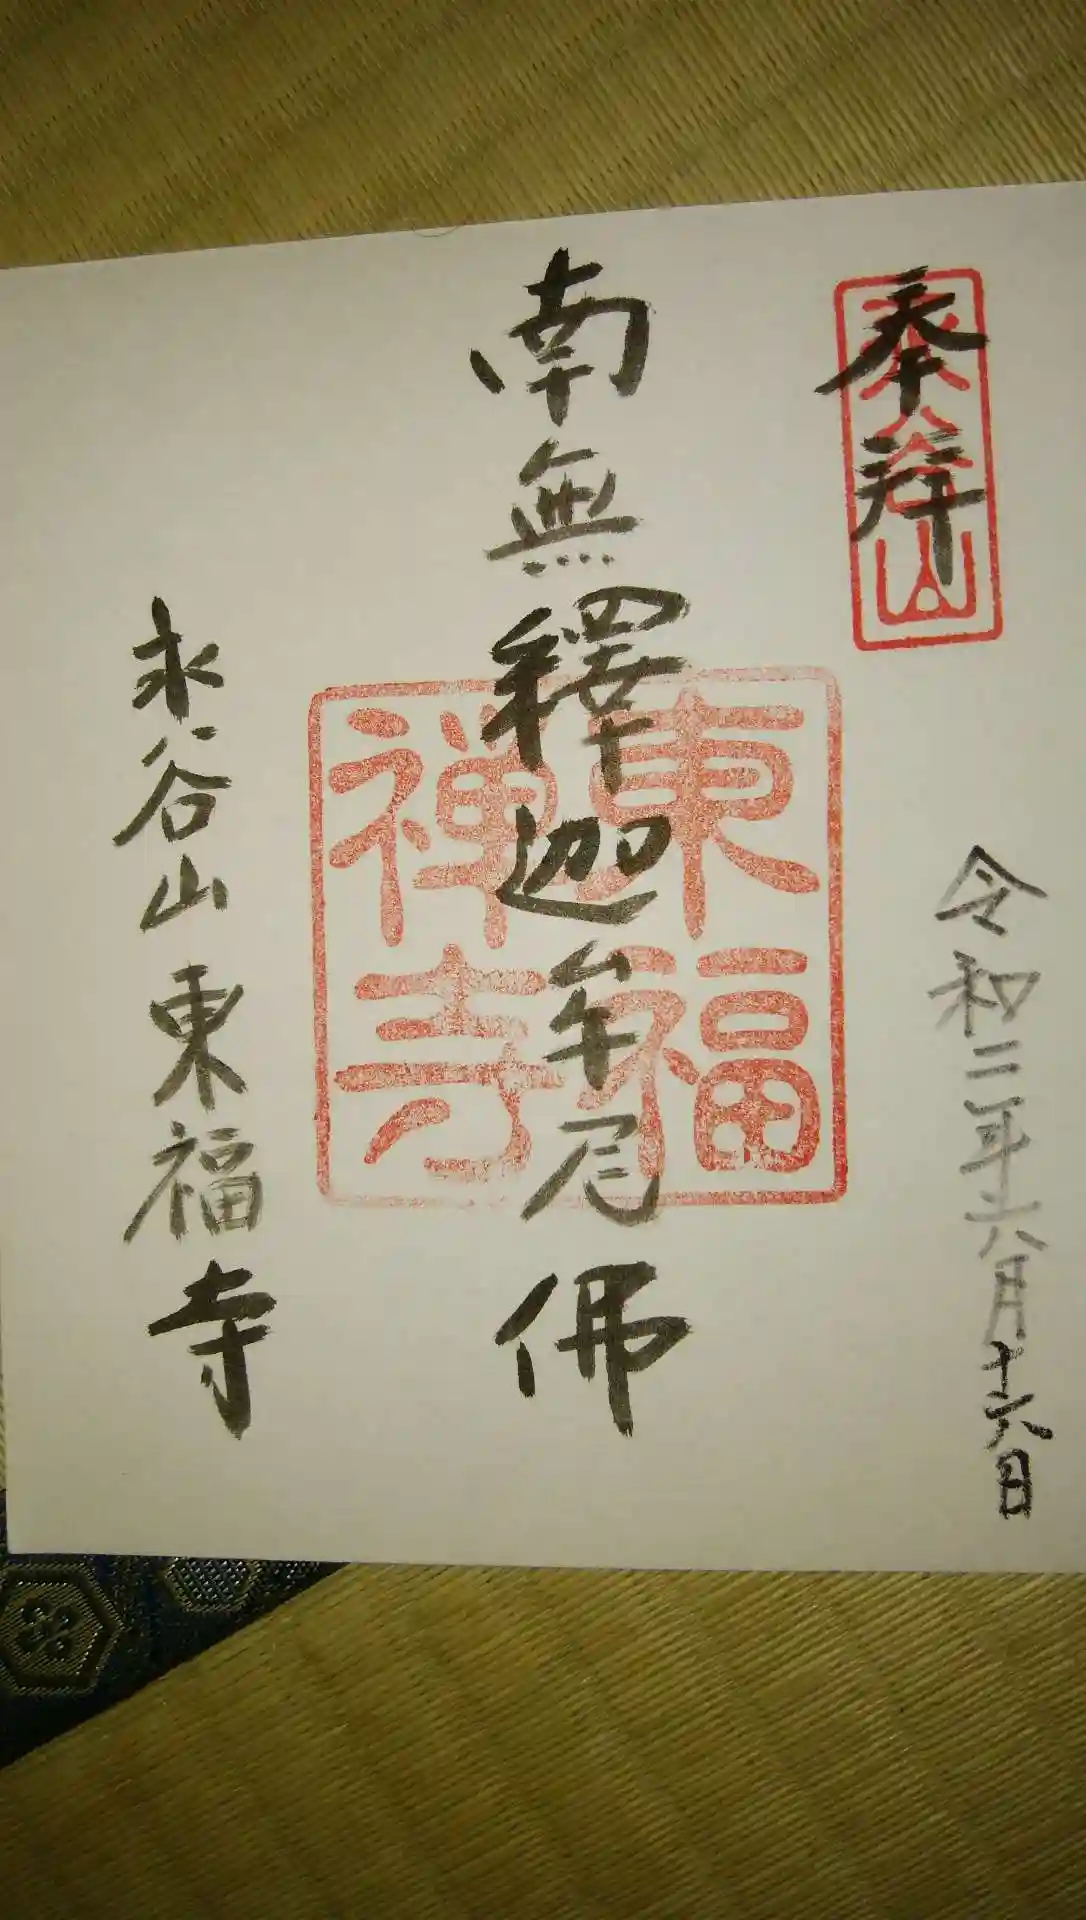 奉拝
永谷山
令和二年六月十六日
南無釋迦牟尼佛
東福
禅寺
永谷山東福寺